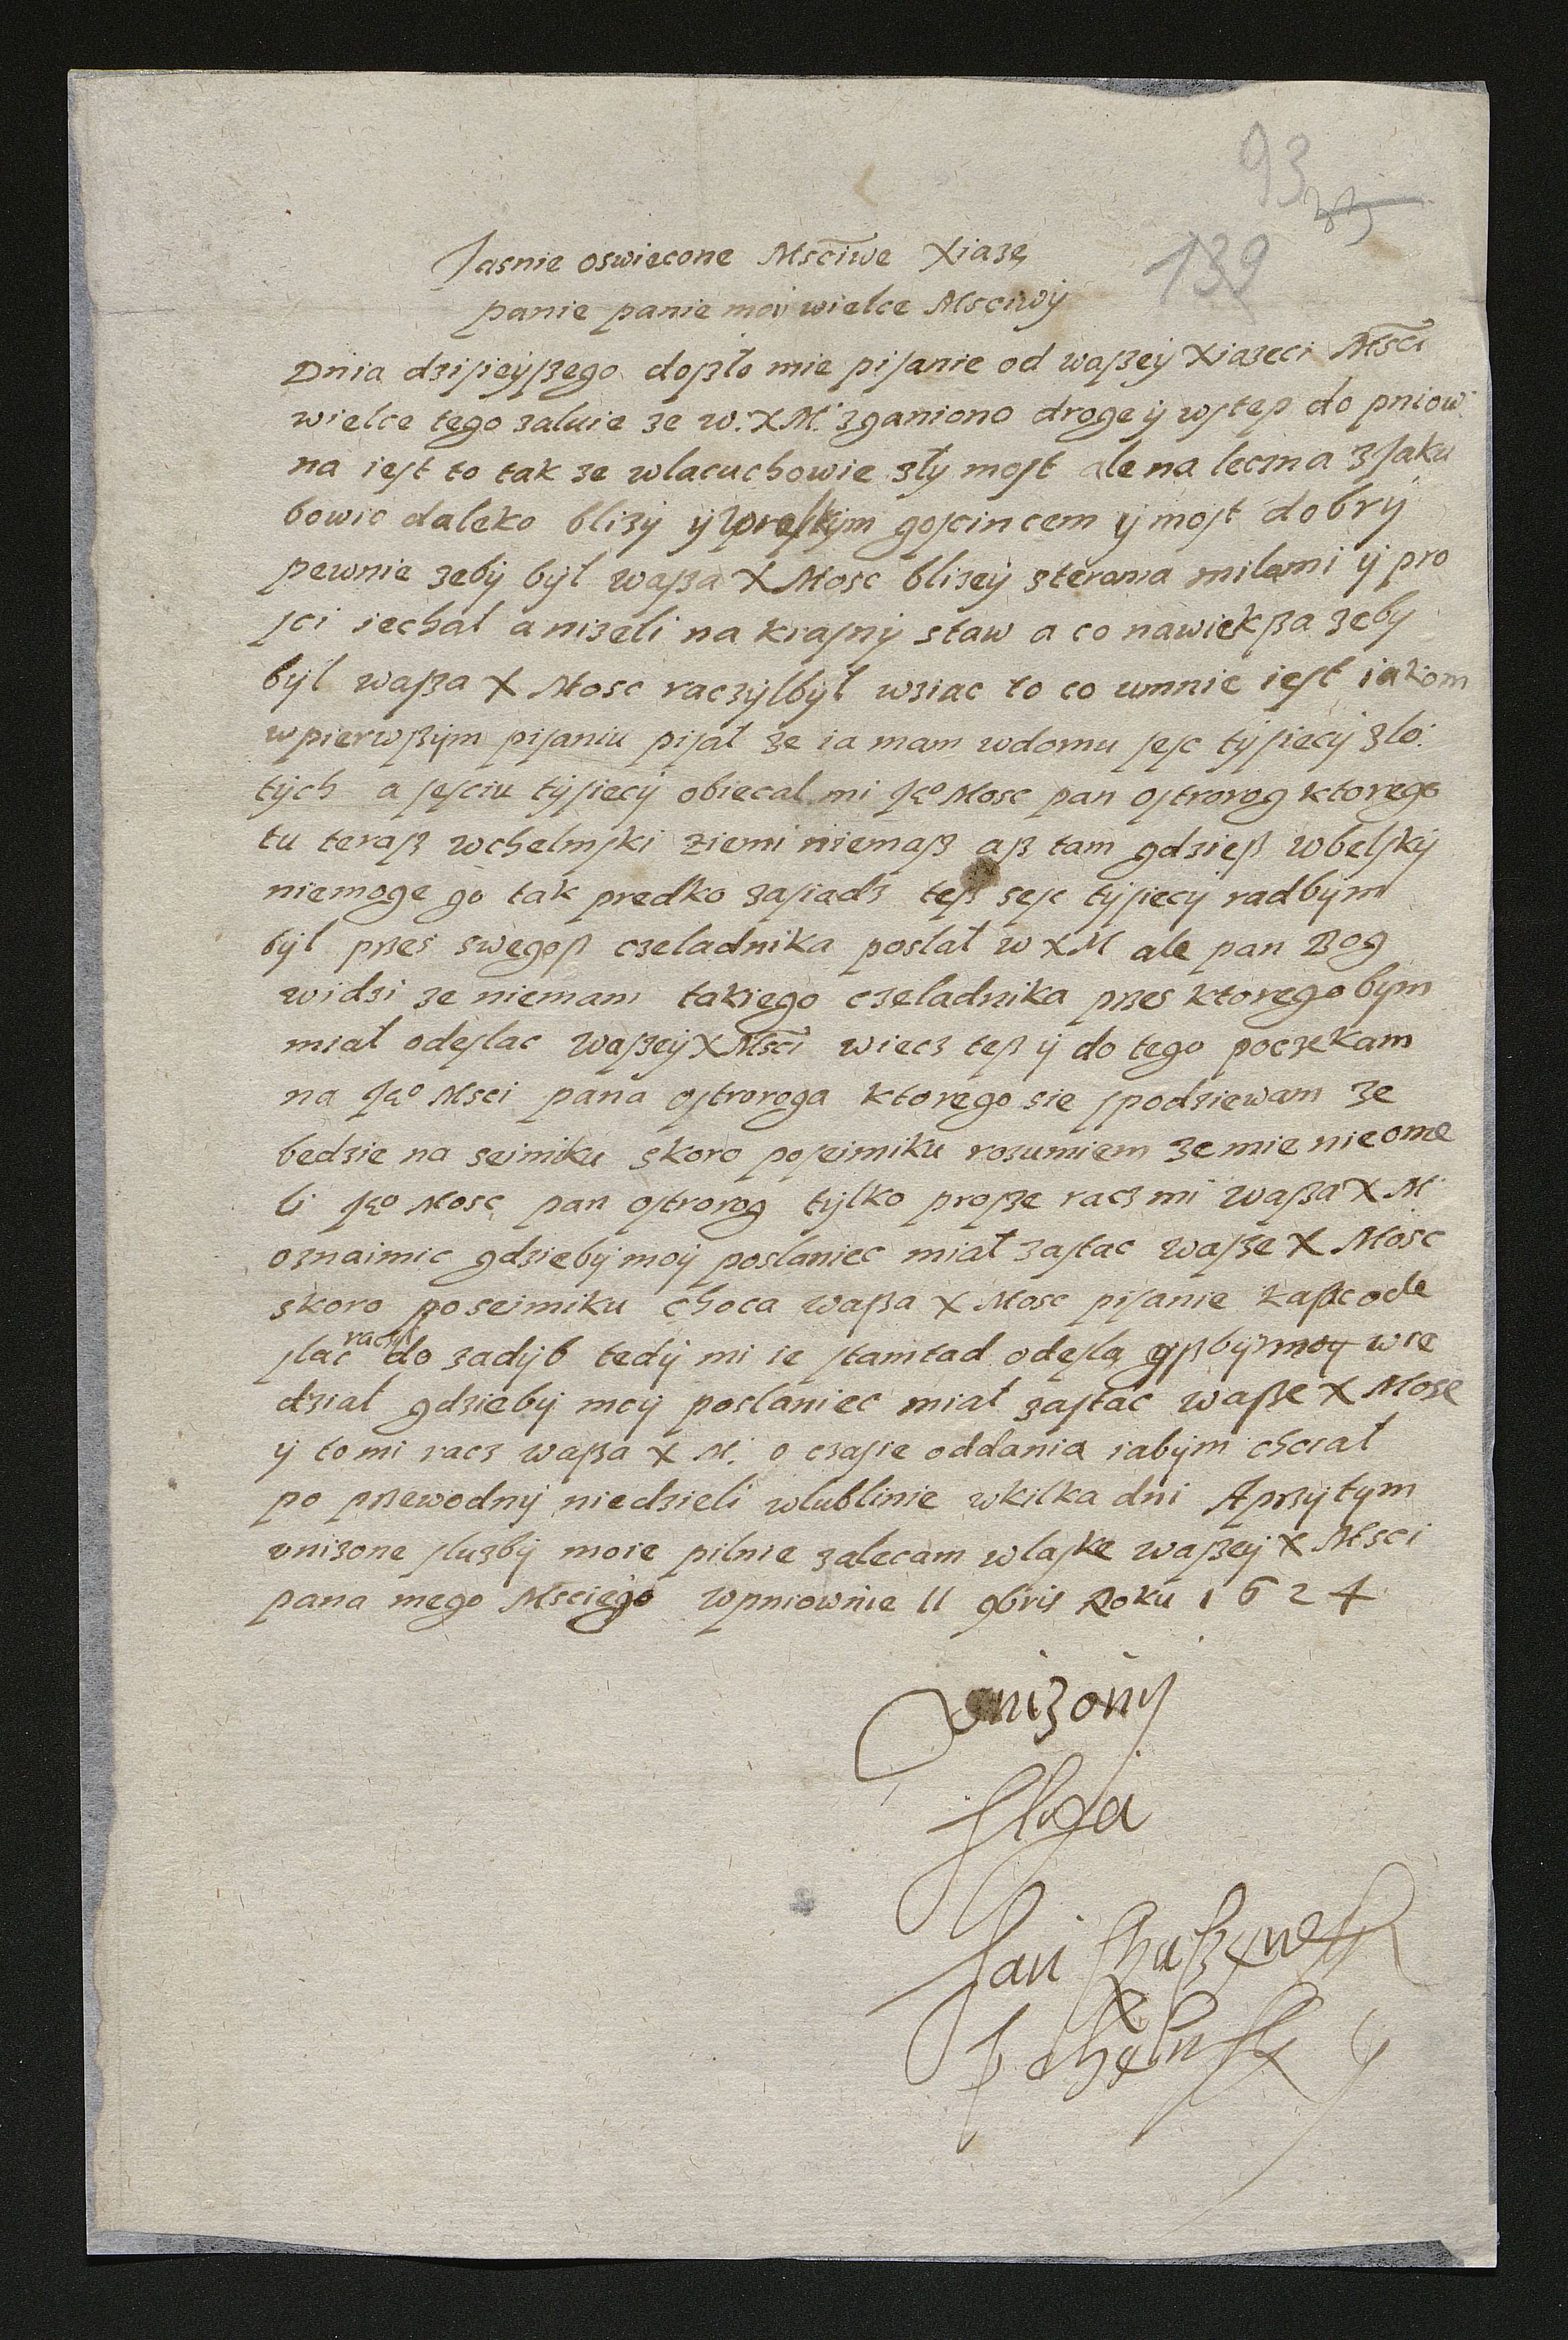 93
33
139
Jasnie oswiecone Msciwe Xiaze
panie panie moy wielce Msciwÿ
Dnia dzisieÿßego doszło mie pisanie od waßeÿ Xiazeci Msci
wielce tego zaluie ze w. X M. zganiono droge ÿ wstep do pniow
na iest to tak ze wlacuchowie złÿ most ale na leczna z Jaku
bowic daleko blizÿ ÿ goscincem ÿ most dobrÿ
pewnie zebÿ bÿł waßa X Mosc blizeÿ milami ÿ pro
sci iechał a nizeli na krasnÿ staw a co nawiekßa zeby
bÿł waßa X Mosc raczÿlbÿł wziac to co umnie iest iakom
wpierwßÿm pisaniu pisał ze ia mam wdomu sesc tÿsiecÿ zlo
tÿch a sesciu tÿsiecÿ obiecal mi Jego Mosc pan ostrorog ktorego
tu teraß wchelmski ziemi niemaß aß tam gdzieß wbelskÿ
niemoge go tak predko zasiadz teß sesc tÿsiecÿ radbÿm
bÿł przes swegoß czeladnika posłał w X M ale pan Bog
widzi ze niemam takiego czeladnika przes ktorego bÿm
miał odesłac waßeÿ X Msci wiecz teß ÿ do tego poczekam
na Jego Msci pana ostroroga ktorego sie spodziewam ze
bedzie na seimiku skoro poseimiku rozumiem ze mie nie ome
li Jego Mosc pan ostrorog tÿlko proße racz mi waßa X M
oznaimic gdziebÿ moÿ poslaniec miał zastac waße X Mosc
skoro poseimiku choca waßa X Mosc pisanie kaßc ode
slac do zadÿb tedÿ mi ie stamtad odesla wie
dział gdziebÿ moÿ poslaniec miał zastac waße X Mosc
ÿ to mi racz waßa X M. o czasie oddania iabÿm chciał
po przewodnÿ niedzieli wlublinie wkilka dni A przÿ tÿm
unizone sluzbÿ moie pilnie zalecam wlaske waßeÿ X Msci
pana mego Msciego wpniownie 11 9bris Roku 1624
unizonÿ
sluga
Jan